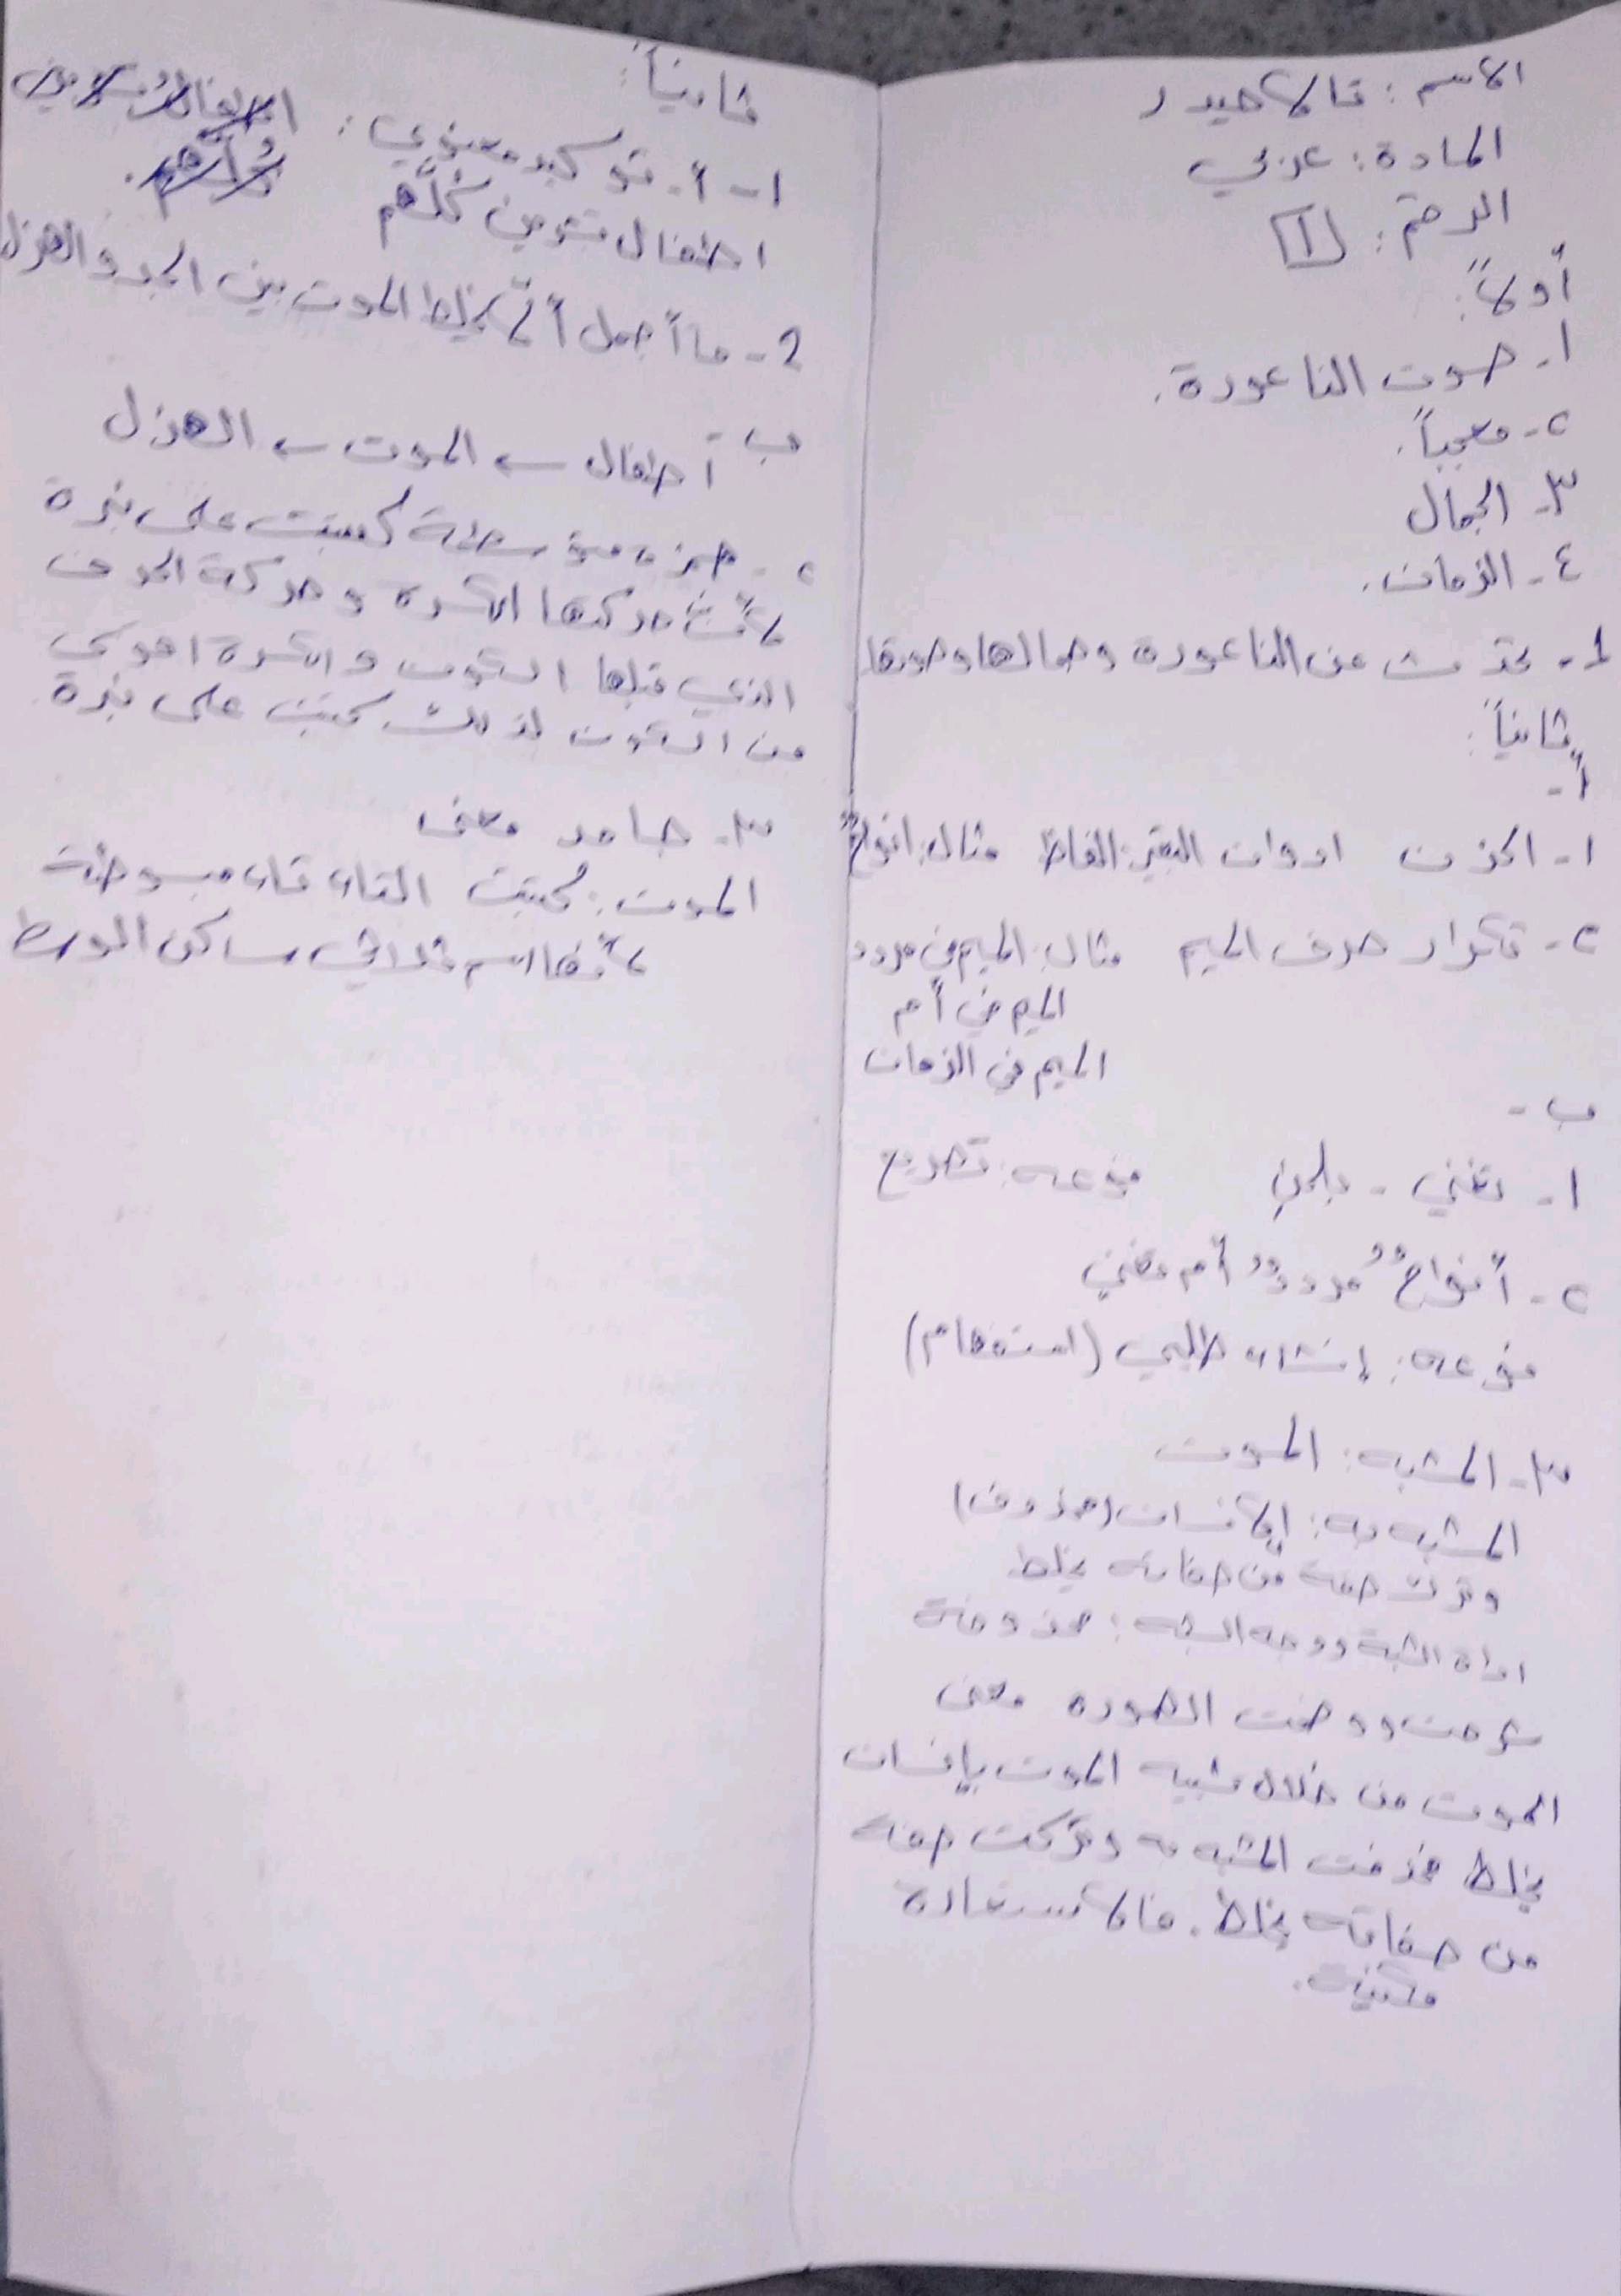 الاسم: تالا حيدر
المادة: عربي
الرقم: 1
أولاً:
١- صوت الناعورة.
٢- معجباً.
٣- الجمال
٤- الزمان.
1- تحدث عن الناعورة وجمالها وصوتها
ثانياً:
أ-
١- الحزن ادوات التعبير: الفاظ مثال: انواحٌ
٢- تكرار حرف الميم مثال: الميم في مردد
الميم في أم
الميم في الزمان
ب-
١- تغني - بلحنِ نوعه: تصريع
٢- أنواحٌ مرددٌ أم تغني
نوعه: إنشاء طلبي (استفهام)
٣- المشبه: الموت
المشبه به: إلانسان (محذوف)
وترك صفة من صفاته يخلط
اداة الشبة ووجه الشبه: محذوفة
شرحت ووضحت الصورة معنى
الموت من خلال تشبيه الموت بإنسان
يخلط حذفت المشبه به وتركت صفه
من صفاته يخلط. فالاستعارة
مكنية.
ثانياً:
١- أ- توكيد معنوي:
اطفال تشرين كُلّهم
2- ما أجمل ألّا يخلط الموت بين الجد والهزل
ب- أطفال ← الموت ← الهزل
٢- همزه متوسطة كُتبت على نبرة
لأنّ حركتها الكسره وحركة الحرف
الذي قبلها السكون والكسرة اقوى
من السكون لذلك كتبت على نبرة.
٣- جامد معنى
الموت: كُتبت التاء تاء مبسوطة
لأنّها اسم ثلاثي ساكن الوسط